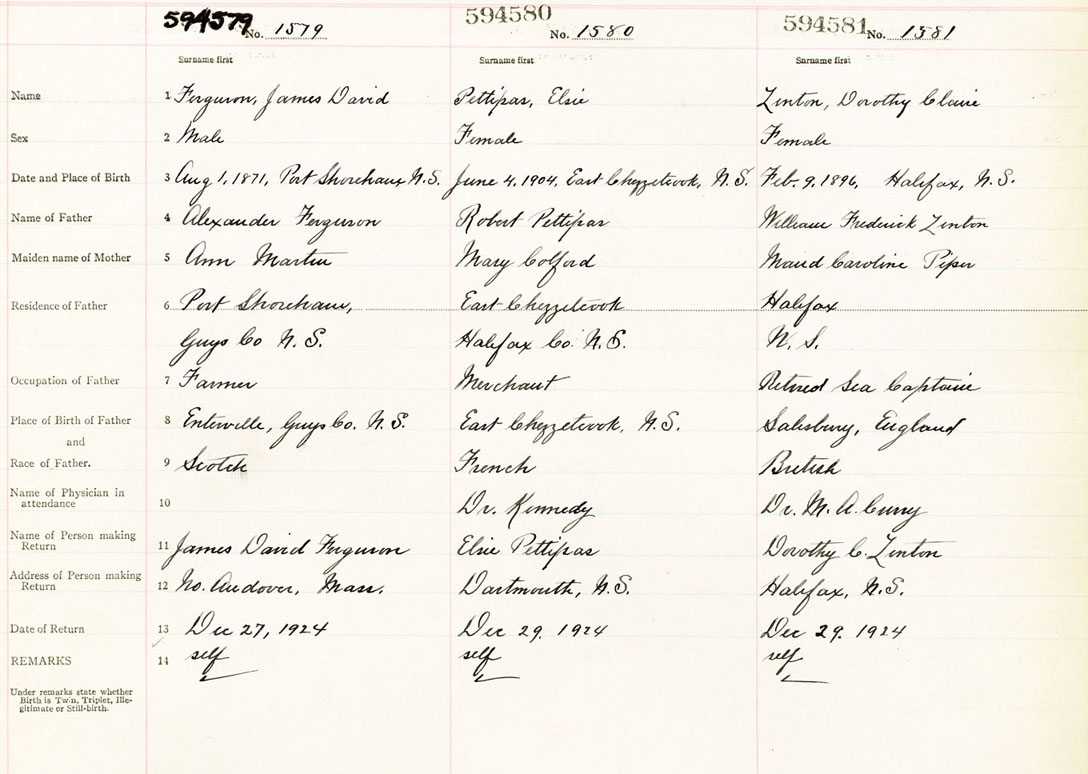 594579 No. 1579 594580 No. 1580 594581 No. 1581
Surname first Surname first Surname first
Name 1 Ferguson, James David Pettipas, Elsie Zinton, Dorothy Claire
Sex 2 Male Female Female
Date and Place of Birth 3 Aug 1, 1871, Port Shoreham N.S. June 4, 1904, East Chezzetcook, N.S. Feb. 9, 1896, Halifax, N.S.
Name of Father 4 Alexander Ferguson Robert Pettipas William Frederick Zinton
Maiden name of Mother 5 Ann Martin Mary Colford Maud Caroline Piper
Residence of Father 6 Port Shoreham, East Chezzetcook Halifax
Guys Co N.S. Halifax Co. N.S. N.S.
Occupation of Father 7 Farmer Merchant Retired Sea Captain
Place of Birth of Father 8 Guys Co. N.S. East Chezzetcook, N.S. Salisbury, England
and
Race of Father. 9 Scotch French British
Name of Physician in
attendance 10 Dr. Kennedy Dr. M. A. Curry
Name of Person making
Return 11 James David Ferguson Elsie Pettipas Dorothy C. Zinton
Address of Person making
Return 12 No. Andover, Mass. Dartmouth, N.S. Halifax, N.S.
Date of Return 13 Dec 27, 1924 Dec 29. 1924 Dec 29. 1924
REMARKS 14 self self self
Under remarks state whether
Birth is Twin, Triplet, Ille-
gitimate or Still-birth.